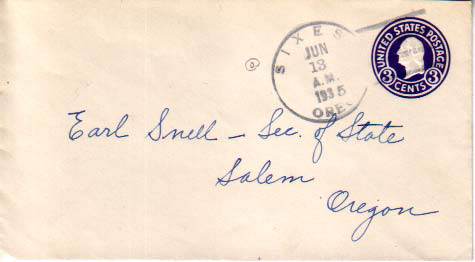 SIXES
JUN
13
A.M.
1935
ORE.
UNITED STATES POSTAGE
3 CENTS 3
Earl Snell – Sec. of State
Salem
Oregon